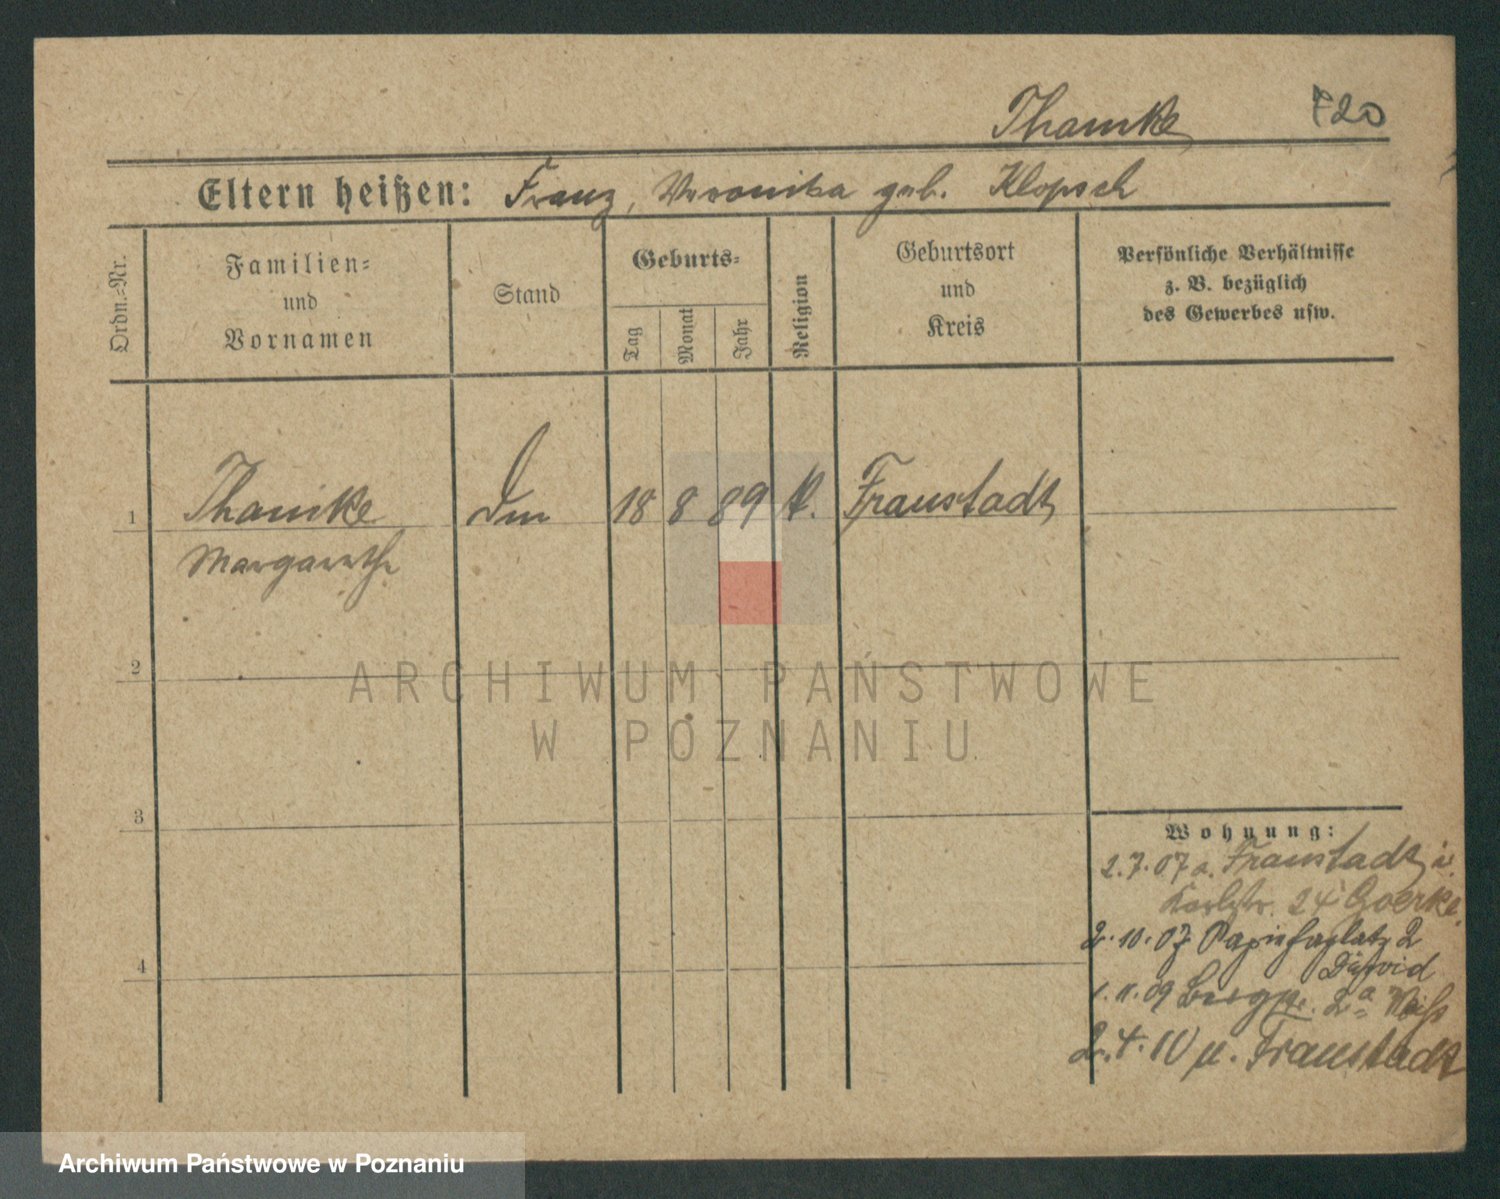 Thamke 720
Eltern heißen: Franz, Veronika geb. Klopsch
Ordn.-Nr.
Familien-
und
Vornamen
Stand
Geburts-
Tag
Monat
Jahr
Religion
Geburtsort
und
Kreis
Persönliche Verhältnisse
z. B. bezüglich
des Gewerbes usw.
1 Thamke 18 8 89 K. Fraustadt
Margarethe
2
ARCHIWUM PAŃSTWOWE
W POZNANIU
3
Wohnung:
2.7.07 a. Fraustadt i.
Karlstr. 24 Goerke
2.10.07 Sapiehaplatz 2
David
1.11.09 Bergstr. 2a Weiß
4
2.4.10 n. Fraustadt
Archiwum Państwowe w Poznaniu